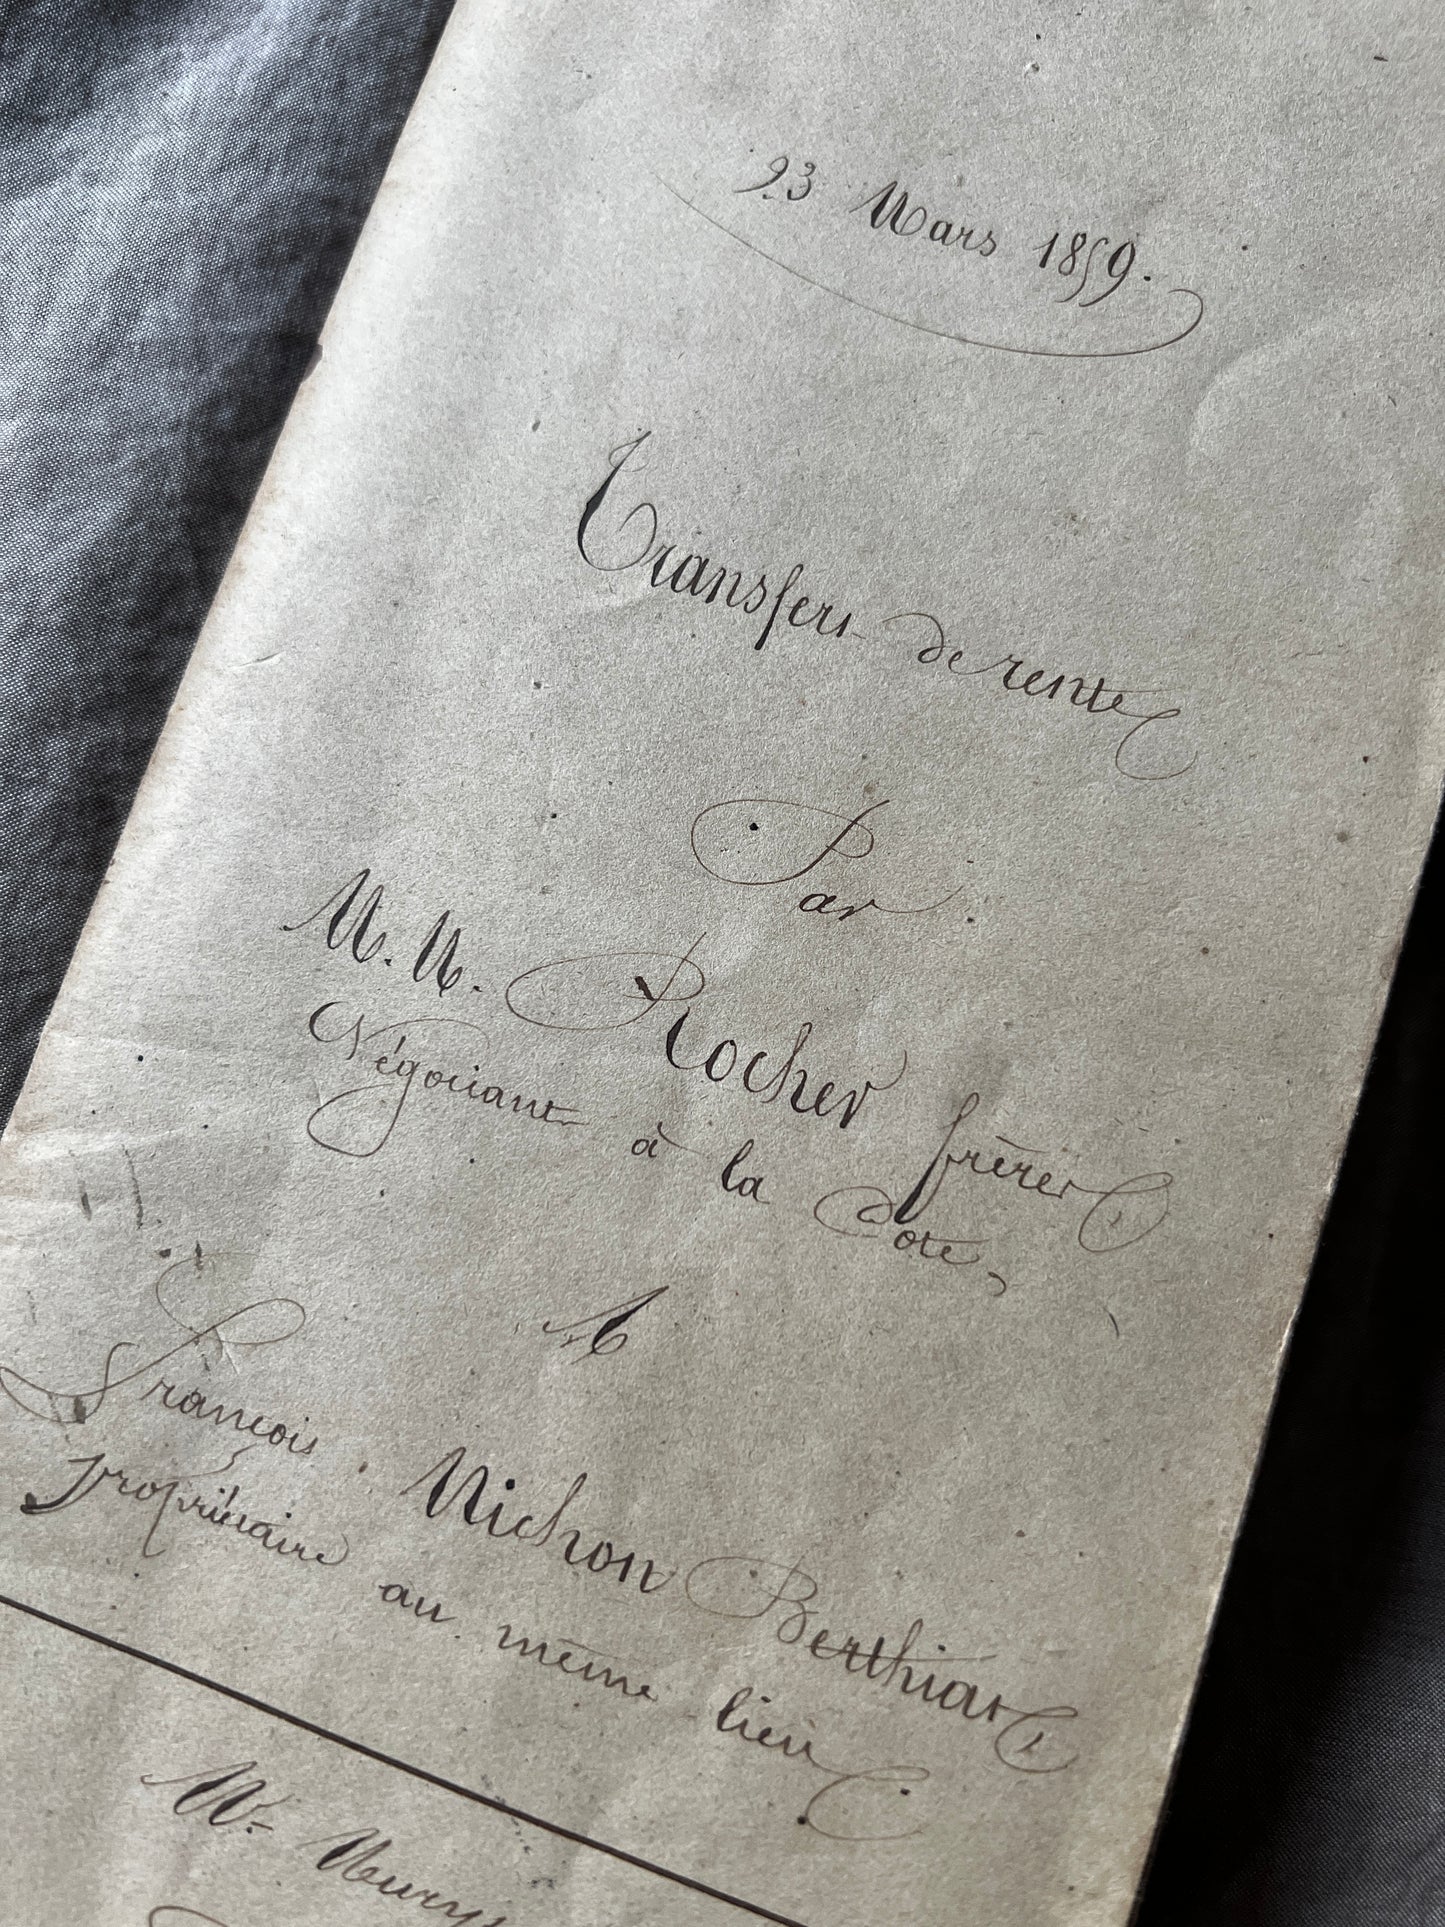 23 Mars 1859.
Transfert de rente
Par
M. M. Rocher frères
Négociant à la Côte,
A
François Michon Berthiar
propriétaire au même lieu
Me